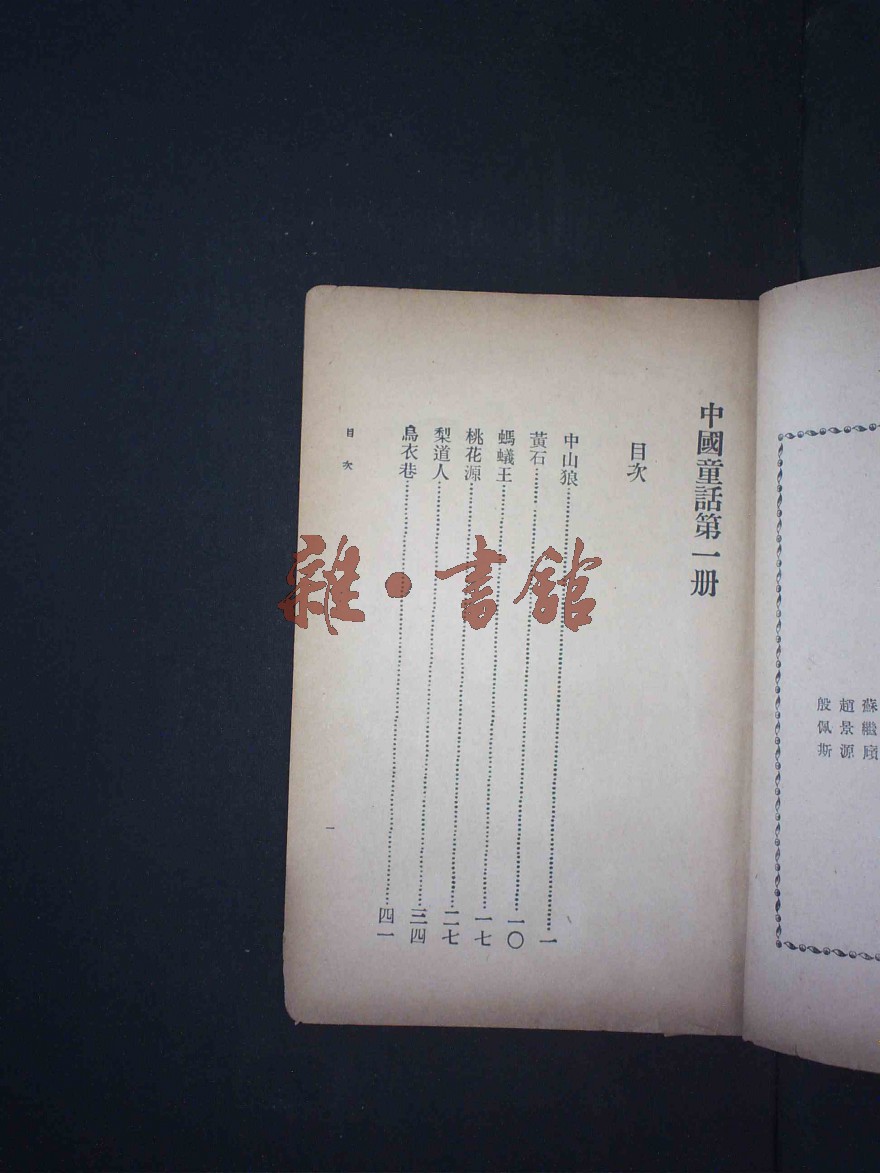 蘇繼廎
趙景源
殷佩斯
中國童話第一册
目次
中山狼……………………一
黃石……………………一〇
螞蟻王……………………一七
桃花源……………………二七
梨道人……………………三四
烏衣巷……………………四一
目次
一
雜·書館